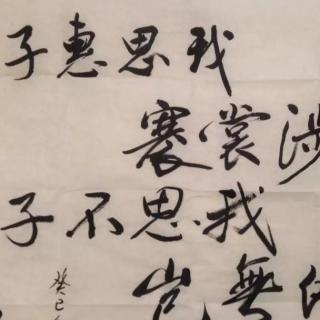 子惠思我
褰裳涉
子不思我
岂無
癸巳